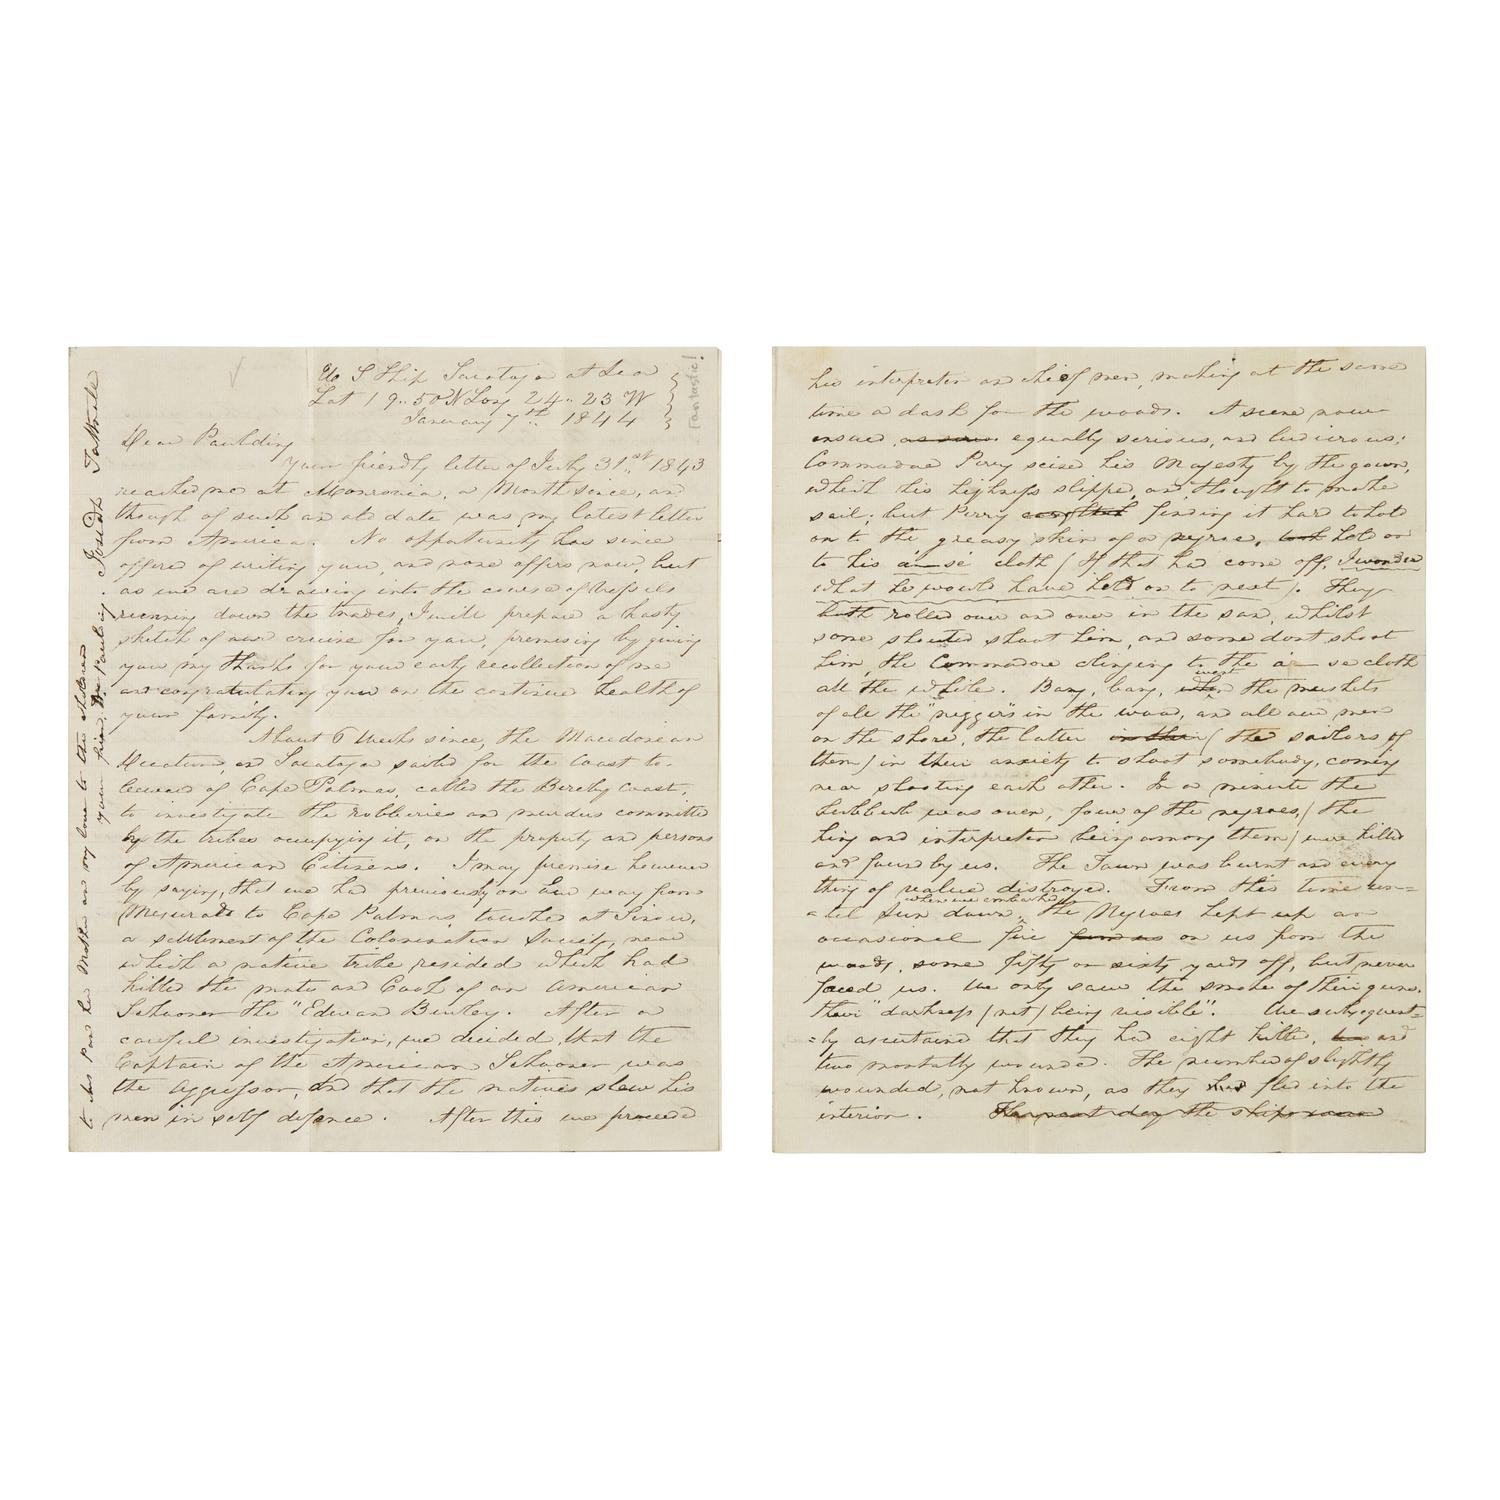 U S Ship Saratoga at Sea
Lat 19.. 50 N Long 24.. 23 W
January 7th 1844
fantastic!
Dear Paulding
your friendly letter of July 31st 1843
reached me at Monrovia, a Month since, and
though of such an old date was my latest letter
from America. No opportunity has since
offered of writing you, and none offers now, but
as we are drawing into the course of Vessels
running down the trades, I will prepare a hasty
sketch of our cruise for you, premising by giving
you my thanks for your early recollection of me
and congratulating you on the continued health of
your family.
About 6 Weeks since, the Macedonian
Decatur, and Saratoga sailed for the Coast to
leeward of Cape Palmas, called the Bereby Coast,
to investigate the robberies and murders committed
by the tribes occupying it, on the property and persons
of American Citizens. I may premise however
by saying, that we had previously on our way from
Mesurado to Cape Palmas, touched at Sinou,
a settlement of the Colonization Society, near
which a native tribe resided which had
killed the mate and Cook of an American
Schooner the "Edward Burley. After a
careful investigation, we decided, that the
Captain of the American Schooner was
the aggressor, and that the natives slew his
men in self defence. After this we proceed
to Mrs Paulding her Mother and my love to the children
your friend Josiah Tattnall
his interpreter and chief men, making at the same
time a dash for the woods. A scene now
ensued, equally serious, and ludicrous;
Commodore Perry seised his Majesty by the gown,
which his highness slipped, and thought to make
sail; but Perry caught finding it hard to hold
on to the greasy skin of a negroe, took hold on
to his a—se cloth (If that had come off, I wonder
what he would have held on to next). They
both rolled over and over in the sand, whilst
some shouted shoot him, and some dont shoot
him, the Commodore clinging to the a—se cloth
all the while. Bang, bang, went the muskets
of all the "niggers" in the wood, and all our men
on the shore, the latter (the sailors of
them) in their anxiety to shoot somebody, coming
near shooting each other. In a minute the
hubbub was over, four of the negroes, (the
king and interpreter being among them) were killed
and found by us. The Town was burnt and every
thing of value destroyed. From this time un=
=til sun down, when we embarked, the Negroes kept up an
occasional fire on us from the
woods, some fifty or sixty yards off, but never
faced us. We only saw the smoke of their guns,
their "darkness (not) being visible". We subsequent=
=ly ascertained that they had eight killed, and
two mortally wounded. The number of slightly
wounded, not known, as they had fled into the
interior. The next day the ships